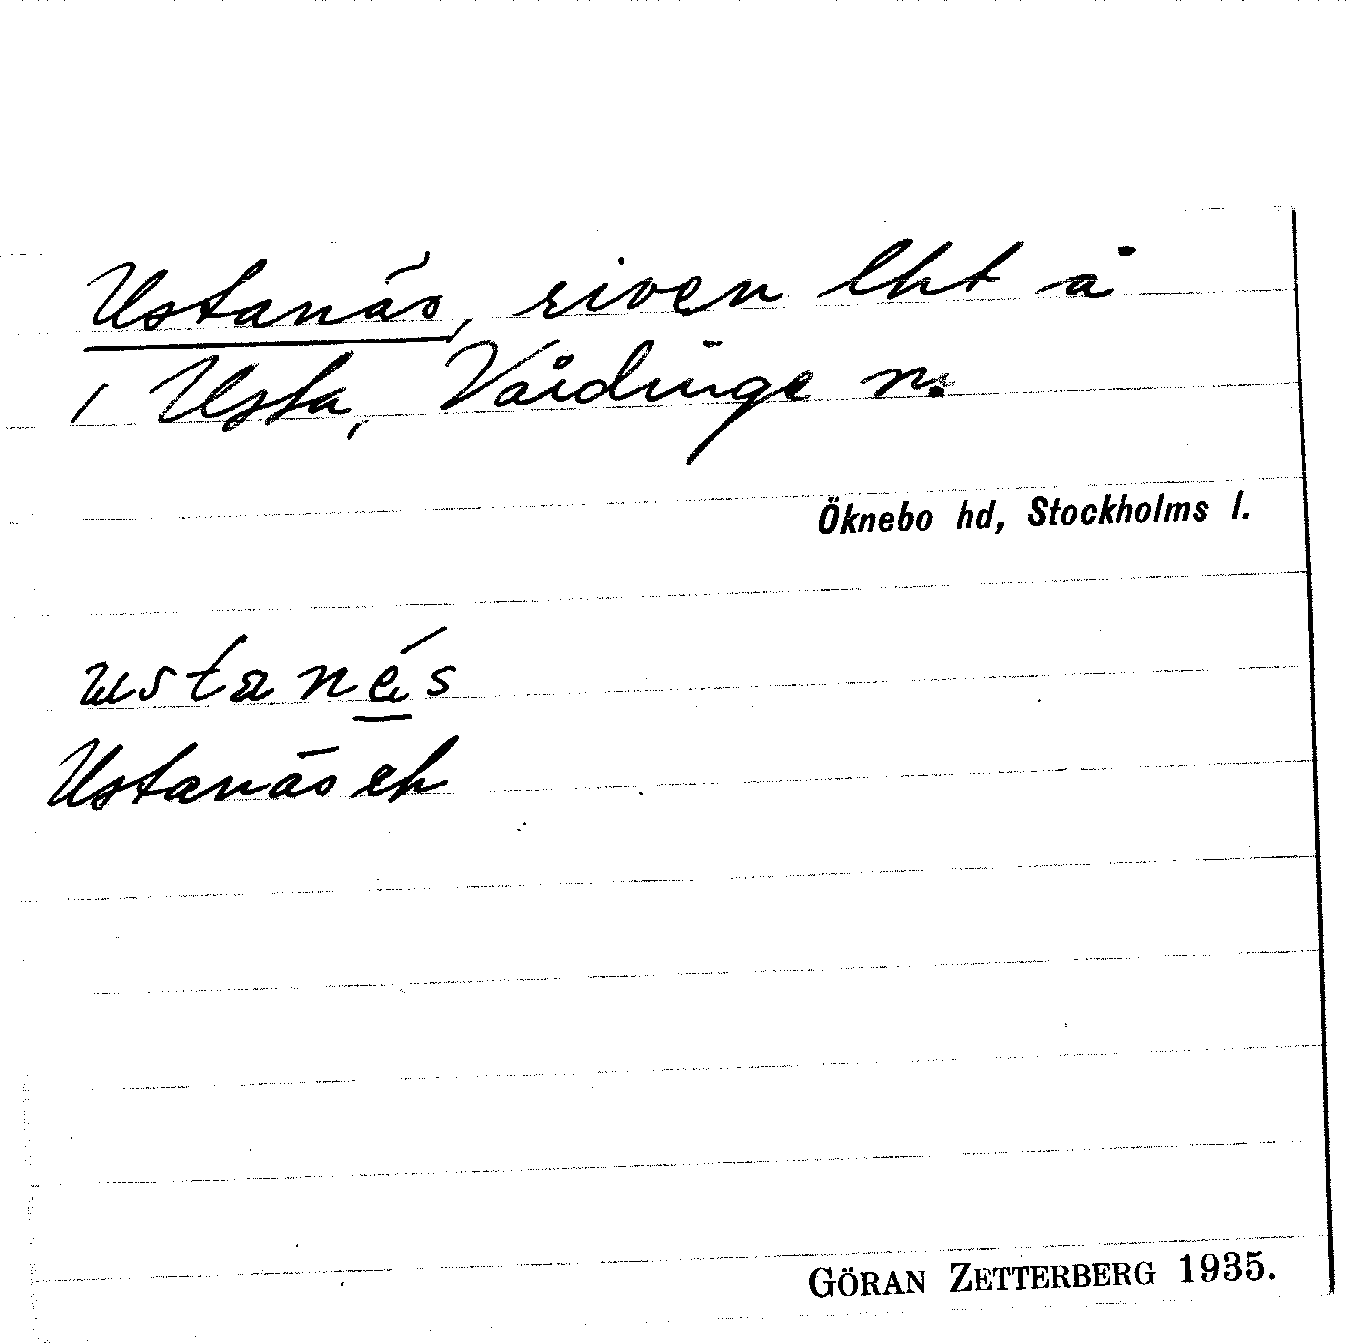 Ustanäs, riven lht å
1 Usta, Vårdinge sn.
Öknebo hd, Stockholms l.
ustanés
Ustanäs ek
GÖRAN ZETTERBERG 1935.